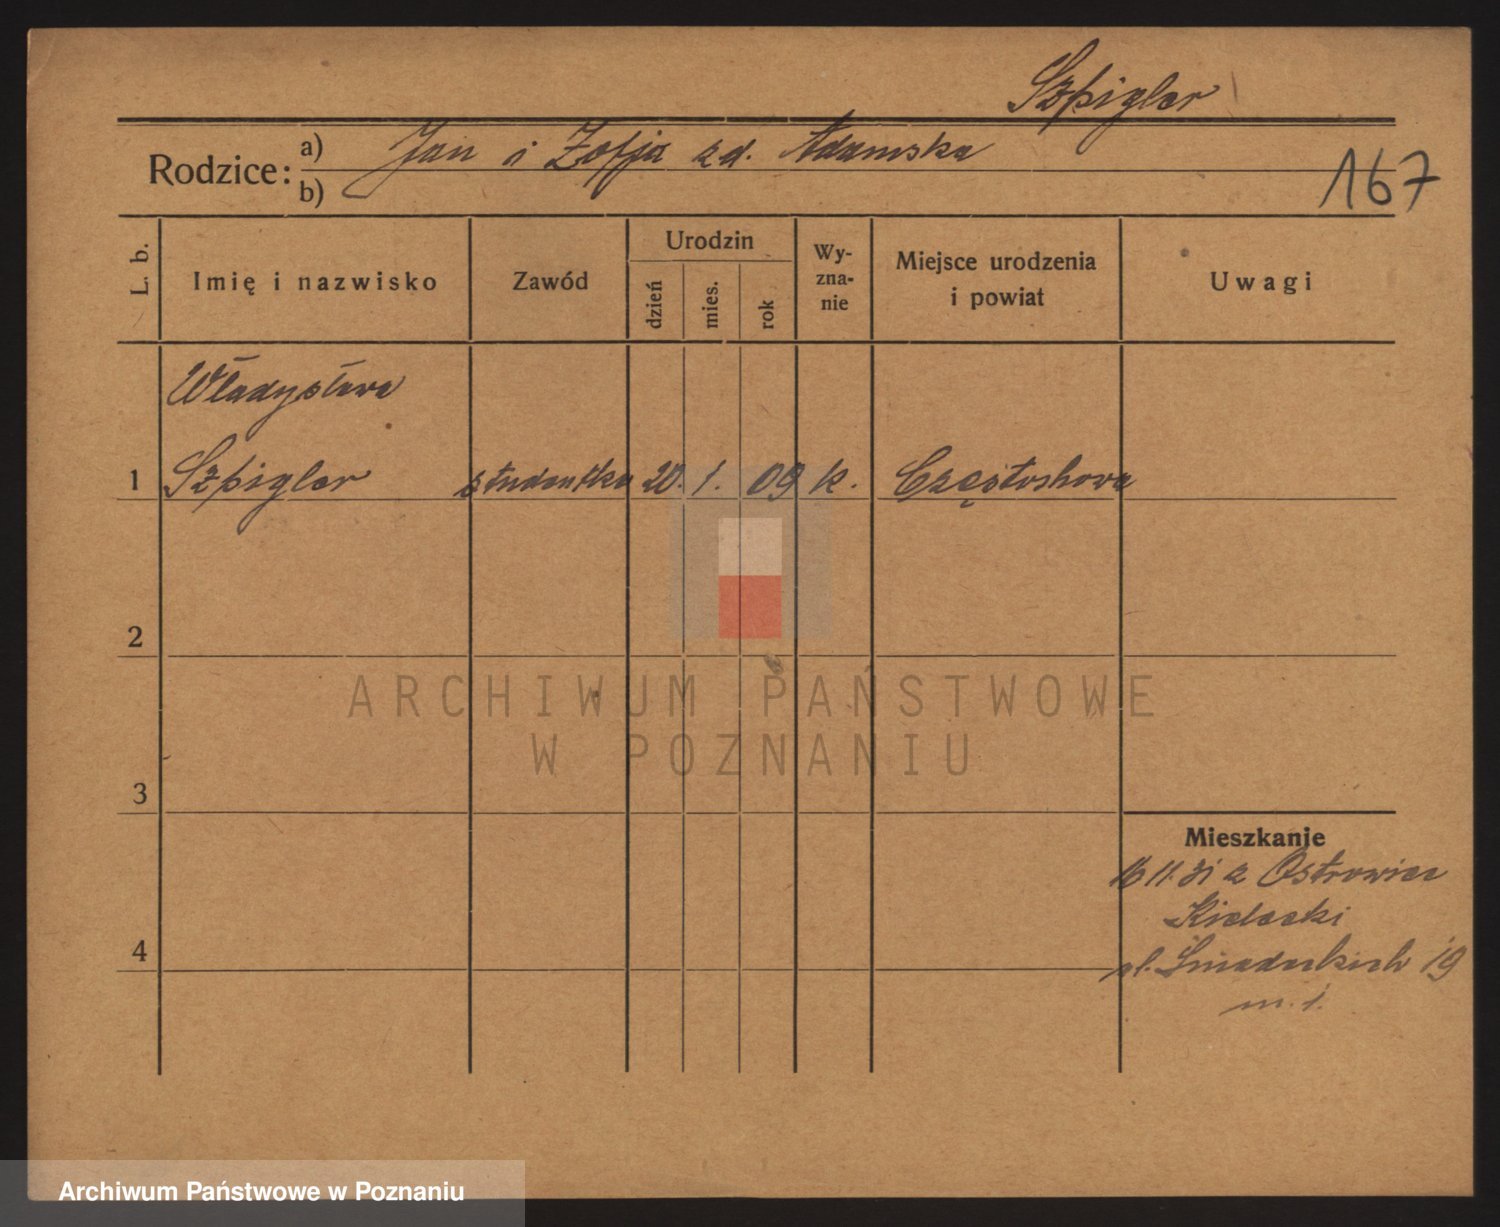 Szpigler
Rodzice:
a) Jan i Zofja zd. Adamska
b)
167
L. b.
Imię i nazwisko
Zawód
Urodzin
dzień
mies.
rok
Wy-
zna-
nie
Miejsce urodzenia
i powiat
Uwagi
Władysława
1 Szpigler studentka 20. 1. 09 k. Częstochowa
2
ARCHIWUM PAŃSTWOWE
W POZNANIU
3
Mieszkanie
16 11. 31 z Ostrowiec
Kielecki
4
pl. Śniadeckich 19
m. 1.
Archiwum Państwowe w Poznaniu